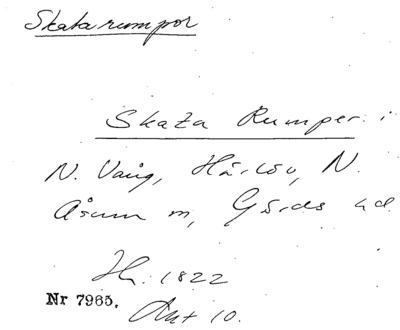 Skatarumpor
Skata Rumper i
N. Vång, Härlöv, N.
Åsum m, Gärds hd
Hh. 1822
Nr 7965. Akt 10.